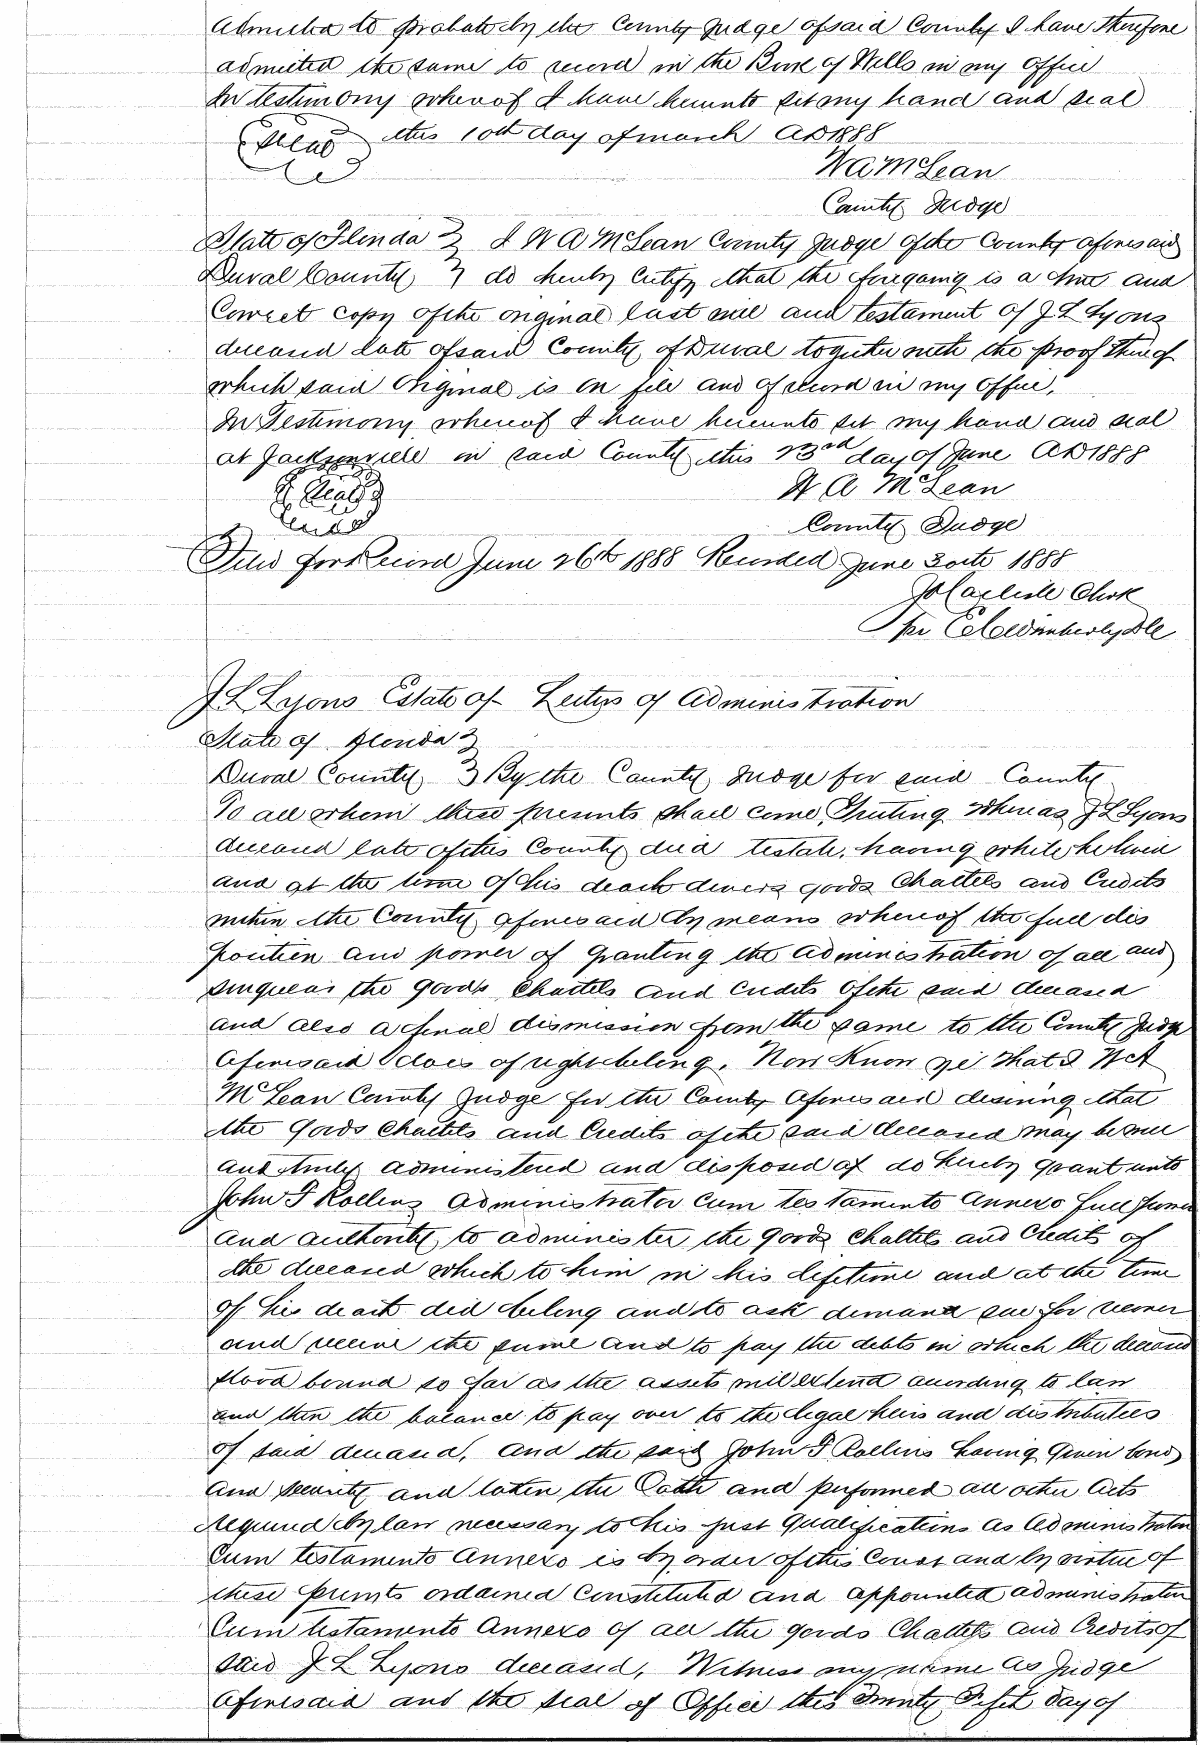 admitted to probate by the County Judge of said County I have therefore
admitted the same to record in the Book of Wills in my office
In testimony whereof I have hereunto set my hand and seal
Seal this 10th day of march AD 1888
W A McLean
County Judge
State of Florida } I W A McLean County Judge of the County aforesaid
Duval County } do hereby Certify that the foregoing is a true and
Correct copy of the original last will and testament of J L Lyons
deceased late of said County of Duval together with the proof thereof
which said original is on file and of record in my office.
In Testimony whereof I have hereunto set my hand and seal
at Jacksonville in said County this 23rd day of June AD 1888
Seal
W A McLean
County Judge
Filed for Record June 26th 1888 Recorded June 30th 1888
Carlisle Clerk
Per Wimberly
J L Lyons Estate of Letters of Administration
State of Florida }
Duval County } By the County Judge for said County
To all whom these presents shall come Greeting Whereas J L Lyons
deceased late of this County died testate, having while he lived
and at the time of his death divers goods Chattels and Credits
within the County aforesaid by means whereof the full dis
position and power of granting the administration of all and
singular the goods Chattels and Credits of the said deceased
and also a final dismission from the same to the County Judge
aforesaid does of right belong. Now Know ye that I W A
McLean County Judge for the County aforesaid desiring that
the Goods Chattels and Credits of the said deceased may be well
and truly administered and disposed of do hereby grant unto
John F Rollins administrator Cum testamento Annexo full power
and authority to administer the goods Chattels and Credits of
the deceased which to him in his lifetime and at the time
of his death did belong and to ask demand sue for recover
and receive the same and to pay the debts in which the deceased
stood bound so far as the assets will extend according to law
and then the balance to pay over to the legal heirs and distributees
of said deceased, and the said John F Rollins having Given bond
and security and taken the Oath and performed all other Acts
required by law necessary to his just Qualifications as Administrator
Cum testamento Annexo is by order of this Court and by virtue of
these presents ordained Constituted and appointed administrator
Cum testamento Annexo of all the goods Chattels and Credits of
said J L Lyons deceased, Witness my name as Judge
aforesaid and the seal of Office this Twenty First day of